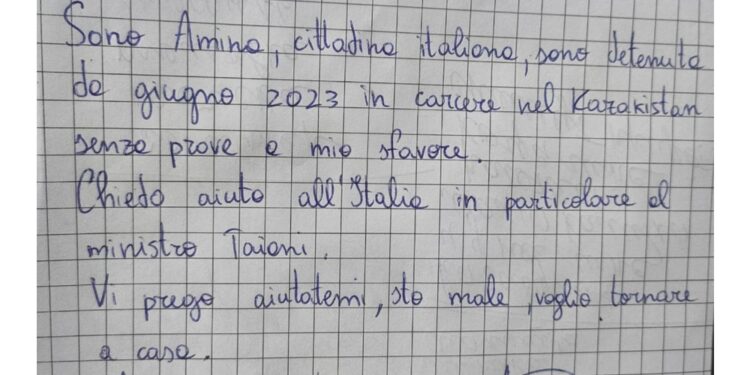 Sono Amina, cittadina italiana, sono detenuta
da giugno 2023 in carcere nel Kazakistan
senza prove a mio sfavore.
Chiedo aiuto all'Italia in particolare al
ministro Taiani.
Vi prego aiutatemi, sto male, voglio tornare
a casa.